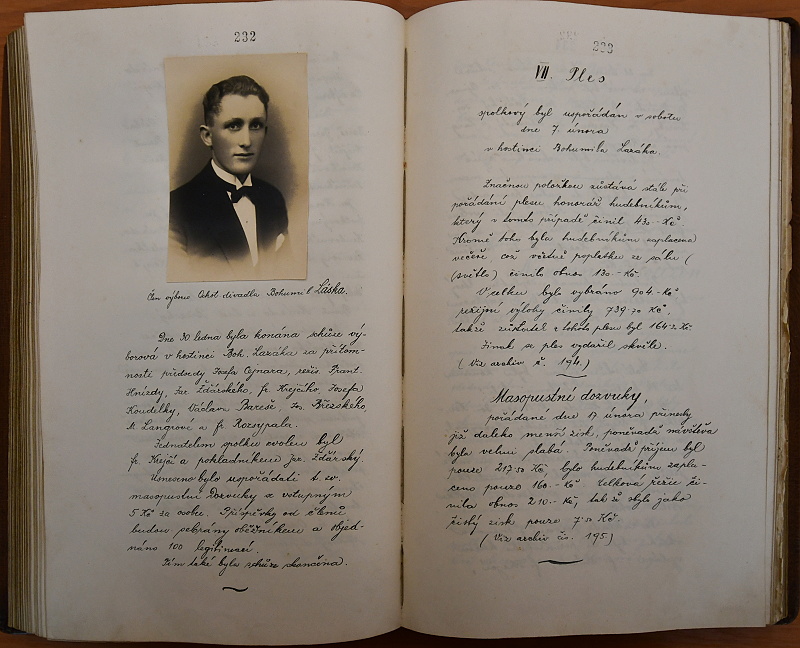 232
Člen výboru Ochot. divadla Bohumil Láska.
Dne 30 ledna byla konána schůze vý-
borová v hostinci Boh. Lazáka za přítom-
nosti předsedy Josefa Cejnara, režis. Frant.
Hnízdy, Jar. Žďárského, fr. Krejčího, Josefa
Koudelky, Václava Bareše, Jos. Březského,
M. Langrové a fr. Rozsypala.
Jednatelem spolku zvolen byl
fr. Krejčí a pokladníkem Jar. Žďárský.
Usneseno bylo uspořádati t. zv.
masopustní Dozvuky s vstupným
5 Kč za osobu. Příspěvky od členů
budou sebrány oběžníkem a objed-
náno 100 legitimací.
Tím také byla schůze skončena.
233
VII. Ples
spolkový byl uspořádán v sobotu
dne 7. února
v hostinci Bohumila Lazáka.
Značnou položkou zůstává stále při
pořádání plesu honorář hudebníkům,
který v tomto případě činil 430.- Kč.
Kromě toho byla hudebníkům zaplacena
večeře, což včetně poplatku ze sálu (
(světlo) činilo obnos 130.- Kč.
V celku bylo vybráno 904.- Kč
režijní výlohy činily 739.70 Kč,
takže zůstatek z tohoto plesu byl 164.30 Kč.
Jinak se ples vydařil skvěle.
(Viz archiv č. 194.)
Masopustné dozvuky,
pořádané dne 17 února přinesly
již daleko menší zisk, poněvadž návštěva
byla velmi slabá. Poněvadž příjem byl
pouze 217.50 Kč, bylo hudebníkům zapla-
ceno pouze 160.- Kč. Celková režie či-
nila obnos 210.- Kč, takže zbylo jako
čistý zisk pouze 7.50 Kč.
(Viz archiv čís. 195)